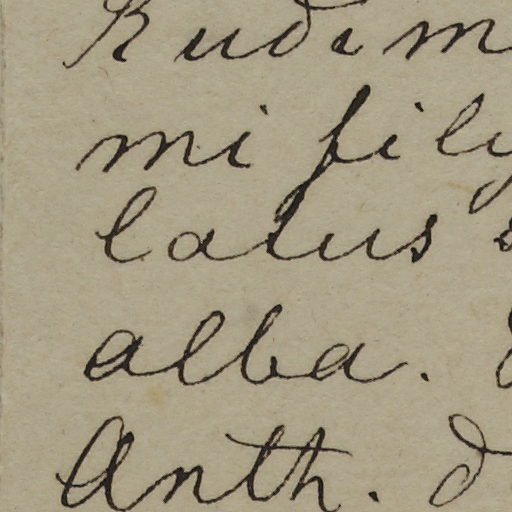 Rudim
mi fili
latus
alba.
Anth. d